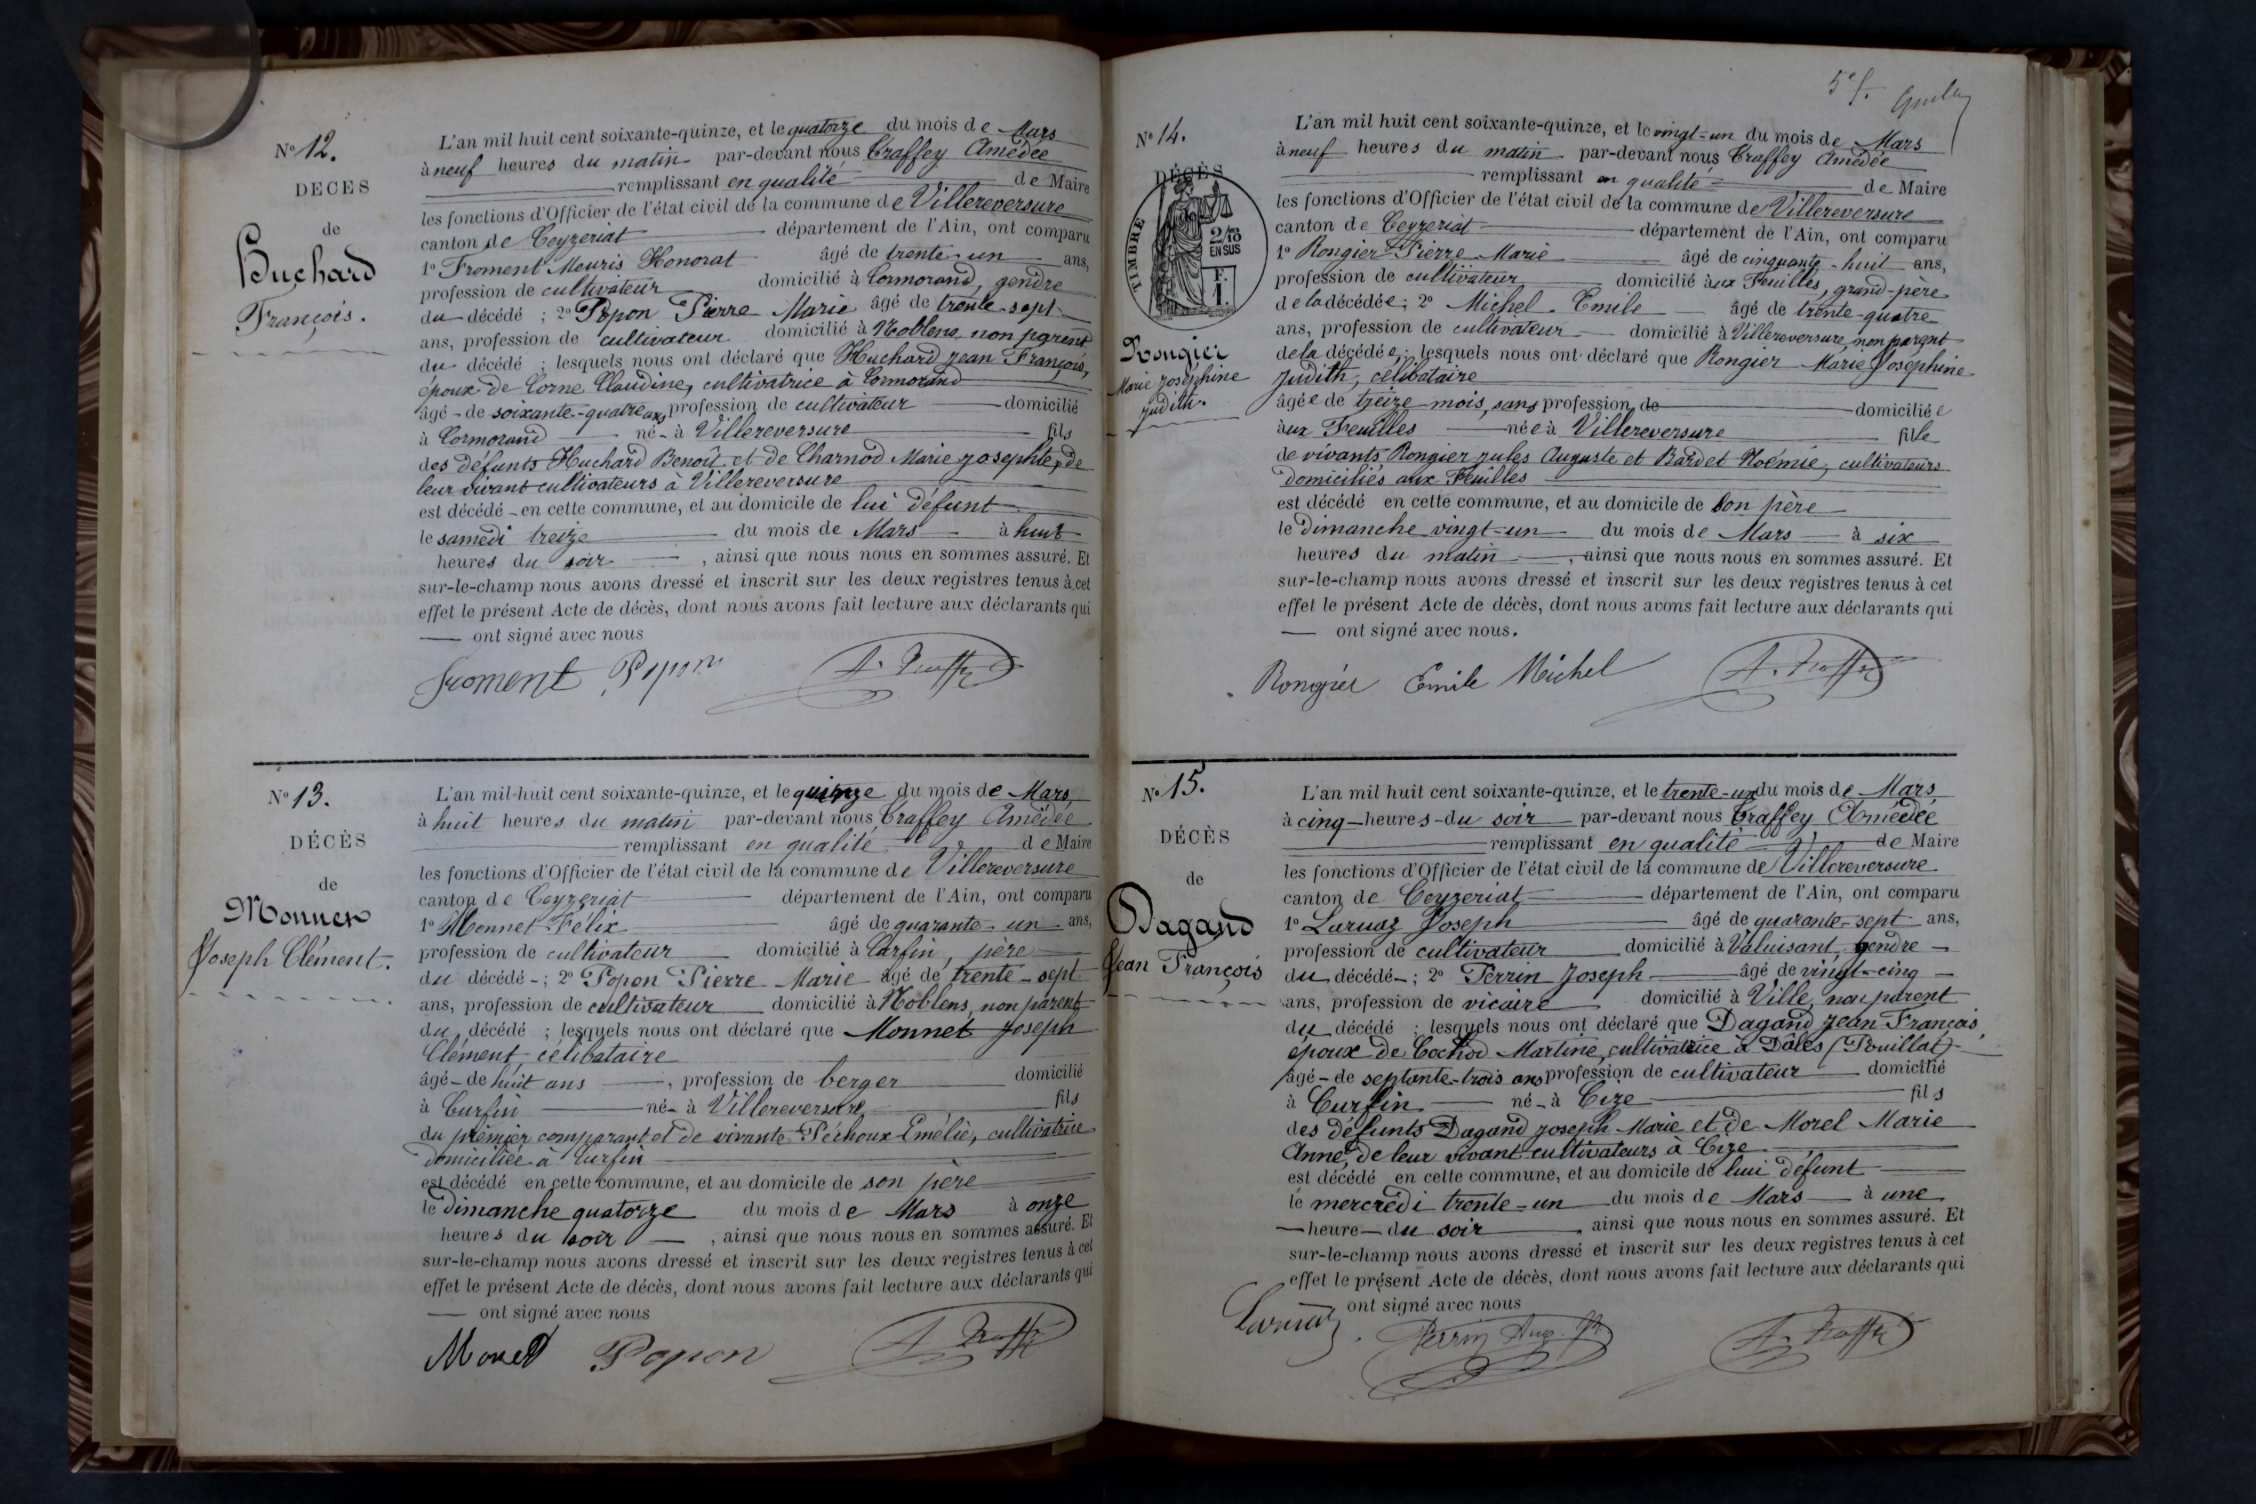 No 12.
DÉCÈS
de
Huchard
François.
L'an mil huit cent soixante-quinze, et le quatorze du mois de Mars
à neuf heures du matin par-devant nous Traffey Amédée
remplissant en qualité de Maire
les fonctions d'Officier de l'état civil de la commune de Villereversure
canton de Ceyzeriat département de l'Ain, ont comparu
1o Froment Meuris Honorat âgé de trente-un ans,
profession de cultivateur domicilié à Cormorand, gendre
du décédé ; 2o Popon Pierre Marie âgé de trente-sept
ans, profession de cultivateur domicilié à Noblens, non parent
du décédé ; lesquels nous ont déclaré que Huchard Jean François,
époux de Corne Claudine, cultivatrice à Cormorand
âgé de soixante-quatre ans profession de cultivateur domicilié
à Cormorand né à Villereversure fils
des défunts Huchard Benoît et de Charnod Marie Josephte, de
leur vivant cultivateurs à Villereversure
est décédé en cette commune, et au domicile de lui défunt
le samedi treize du mois de Mars à huit
heures du soir , ainsi que nous nous en sommes assuré. Et
sur-le-champ nous avons dressé et inscrit sur les deux registres tenus à cet
effet le présent Acte de décès, dont nous avons fait lecture aux déclarants qui
ont signé avec nous
Froment Popon A. Traffey
No 13.
DÉCÈS
de
Monnet
Joseph Clément.
L'an mil huit cent soixante-quinze, et le quinze du mois de Mars,
à huit heures du matin par-devant nous Traffey Amédée
remplissant en qualité de Maire
les fonctions d'Officier de l'état civil de la commune de Villereversure
canton de Ceyzeriat département de l'Ain, ont comparu
1o Monnet Félix âgé de quarante-un ans,
profession de cultivateur domicilié à Curfin, père
du décédé ; 2o Popon Pierre Marie âgé de trente-sept
ans, profession de cultivateur domicilié à Noblens, non parent
du décédé ; lesquels nous ont déclaré que Monnet Joseph
Clément, célibataire
âgé de huit ans , profession de berger domicilié
à Curfin né à Villereversure fils
du premier comparant et de vivante Péchoux Emélie, cultivatrice
domiciliée à Curfin
est décédé en cette commune, et au domicile de son père
le dimanche quatorze du mois de Mars à onze
heures du soir , ainsi que nous nous en sommes assuré. Et
sur-le-champ nous avons dressé et inscrit sur les deux registres tenus à cet
effet le présent Acte de décès, dont nous avons fait lecture aux déclarants qui
ont signé avec nous
Monet Popon A. Traffey
5e f.
No 14.
DÉCÈS
TIMBRE
2/10
EN SUS
F.
1.
Rongier
Marie Joséphine
Judith.
L'an mil huit cent soixante-quinze, et le vingt-un du mois de Mars
à neuf heures du matin par-devant nous Traffey Amédée
remplissant en qualité de Maire
les fonctions d'Officier de l'état civil de la commune de Villereversure
canton de Ceyzeriat département de l'Ain, ont comparu
1o Rongier Pierre Marie âgé de cinquante-huit ans,
profession de cultivateur domicilié aux Feuilles, grand-père
de la décédée ; 2o Michel Emile âgé de trente-quatre
ans, profession de cultivateur domicilié à Villereversure, non parent
de la décédée ; lesquels nous ont déclaré que Rongier Marie Joséphine
Judith, célibataire
âgée de treize mois, sans profession de domiciliée
aux Feuilles née à Villereversure fille
de vivants Rongier Jules Auguste et Bardet Noémie, cultivateurs
domiciliés aux Feuilles
est décédé en cette commune, et au domicile de son père
le dimanche vingt-un du mois de Mars à six
heures du matin , ainsi que nous nous en sommes assuré. Et
sur-le-champ nous avons dressé et inscrit sur les deux registres tenus à cet
effet le présent Acte de décès, dont nous avons fait lecture aux déclarants qui
ont signé avec nous.
Rongier Emile Michel A. Traffey
No 15.
DÉCÈS
de
Dagand
Jean François
L'an mil huit cent soixante-quinze, et le trente-un du mois de Mars
à cinq heures du soir par-devant nous Traffey Amédée
remplissant en qualité de Maire
les fonctions d'Officier de l'état civil de la commune de Villereversure
canton de Ceyzeriat département de l'Ain, ont comparu
1o Laruaz Joseph âgé de quarante-sept ans,
profession de cultivateur domicilié à Valuisant, gendre
du décédé ; 2o Perrin Joseph âgé de vingt-cinq
ans, profession de vicaire domicilié à Ville, non parent
du décédé ; lesquels nous ont déclaré que Dagand Jean François,
époux de Cochod Martine, cultivatrice à Dales (Pouillat)
âgé de septante-trois ans profession de cultivateur domicilié
à Curfin né à Cize fils
des défunts Dagand Joseph Marie et de Morel Marie
Anne, de leur vivant cultivateurs à Cize
est décédé en cette commune, et au domicile de lui défunt
le mercredi trente-un du mois de Mars à une
heure du soir ainsi que nous nous en sommes assuré. Et
sur-le-champ nous avons dressé et inscrit sur les deux registres tenus à cet
effet le présent Acte de décès, dont nous avons fait lecture aux déclarants qui
ont signé avec nous
Laruaz Perrin A. Traffey